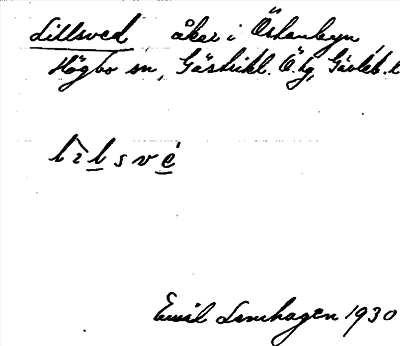 Lillsved, åker i Östanbyn,
Högbo sn, Gästrikl. Ö.tg, Gävleb. l
lìlsvé
Emil Lenhagen 1930